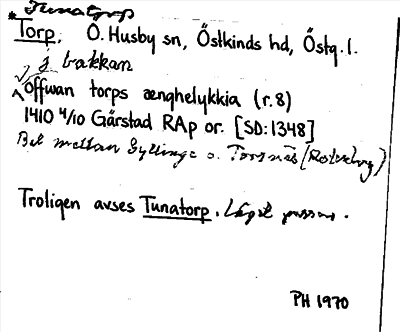 Tunatorp
*Torp. Ö. Husby sn, Östkinds hd, Östg. l.
j bakkan
offwan torps ænghelykkia (r. 8)
1410 4/10 Gärstad RAp or. [SD:1348]
Bel mellan Gyllinge o. Torsnäs
Troligen avses Tunatorp. Läget passar.
PH 1970